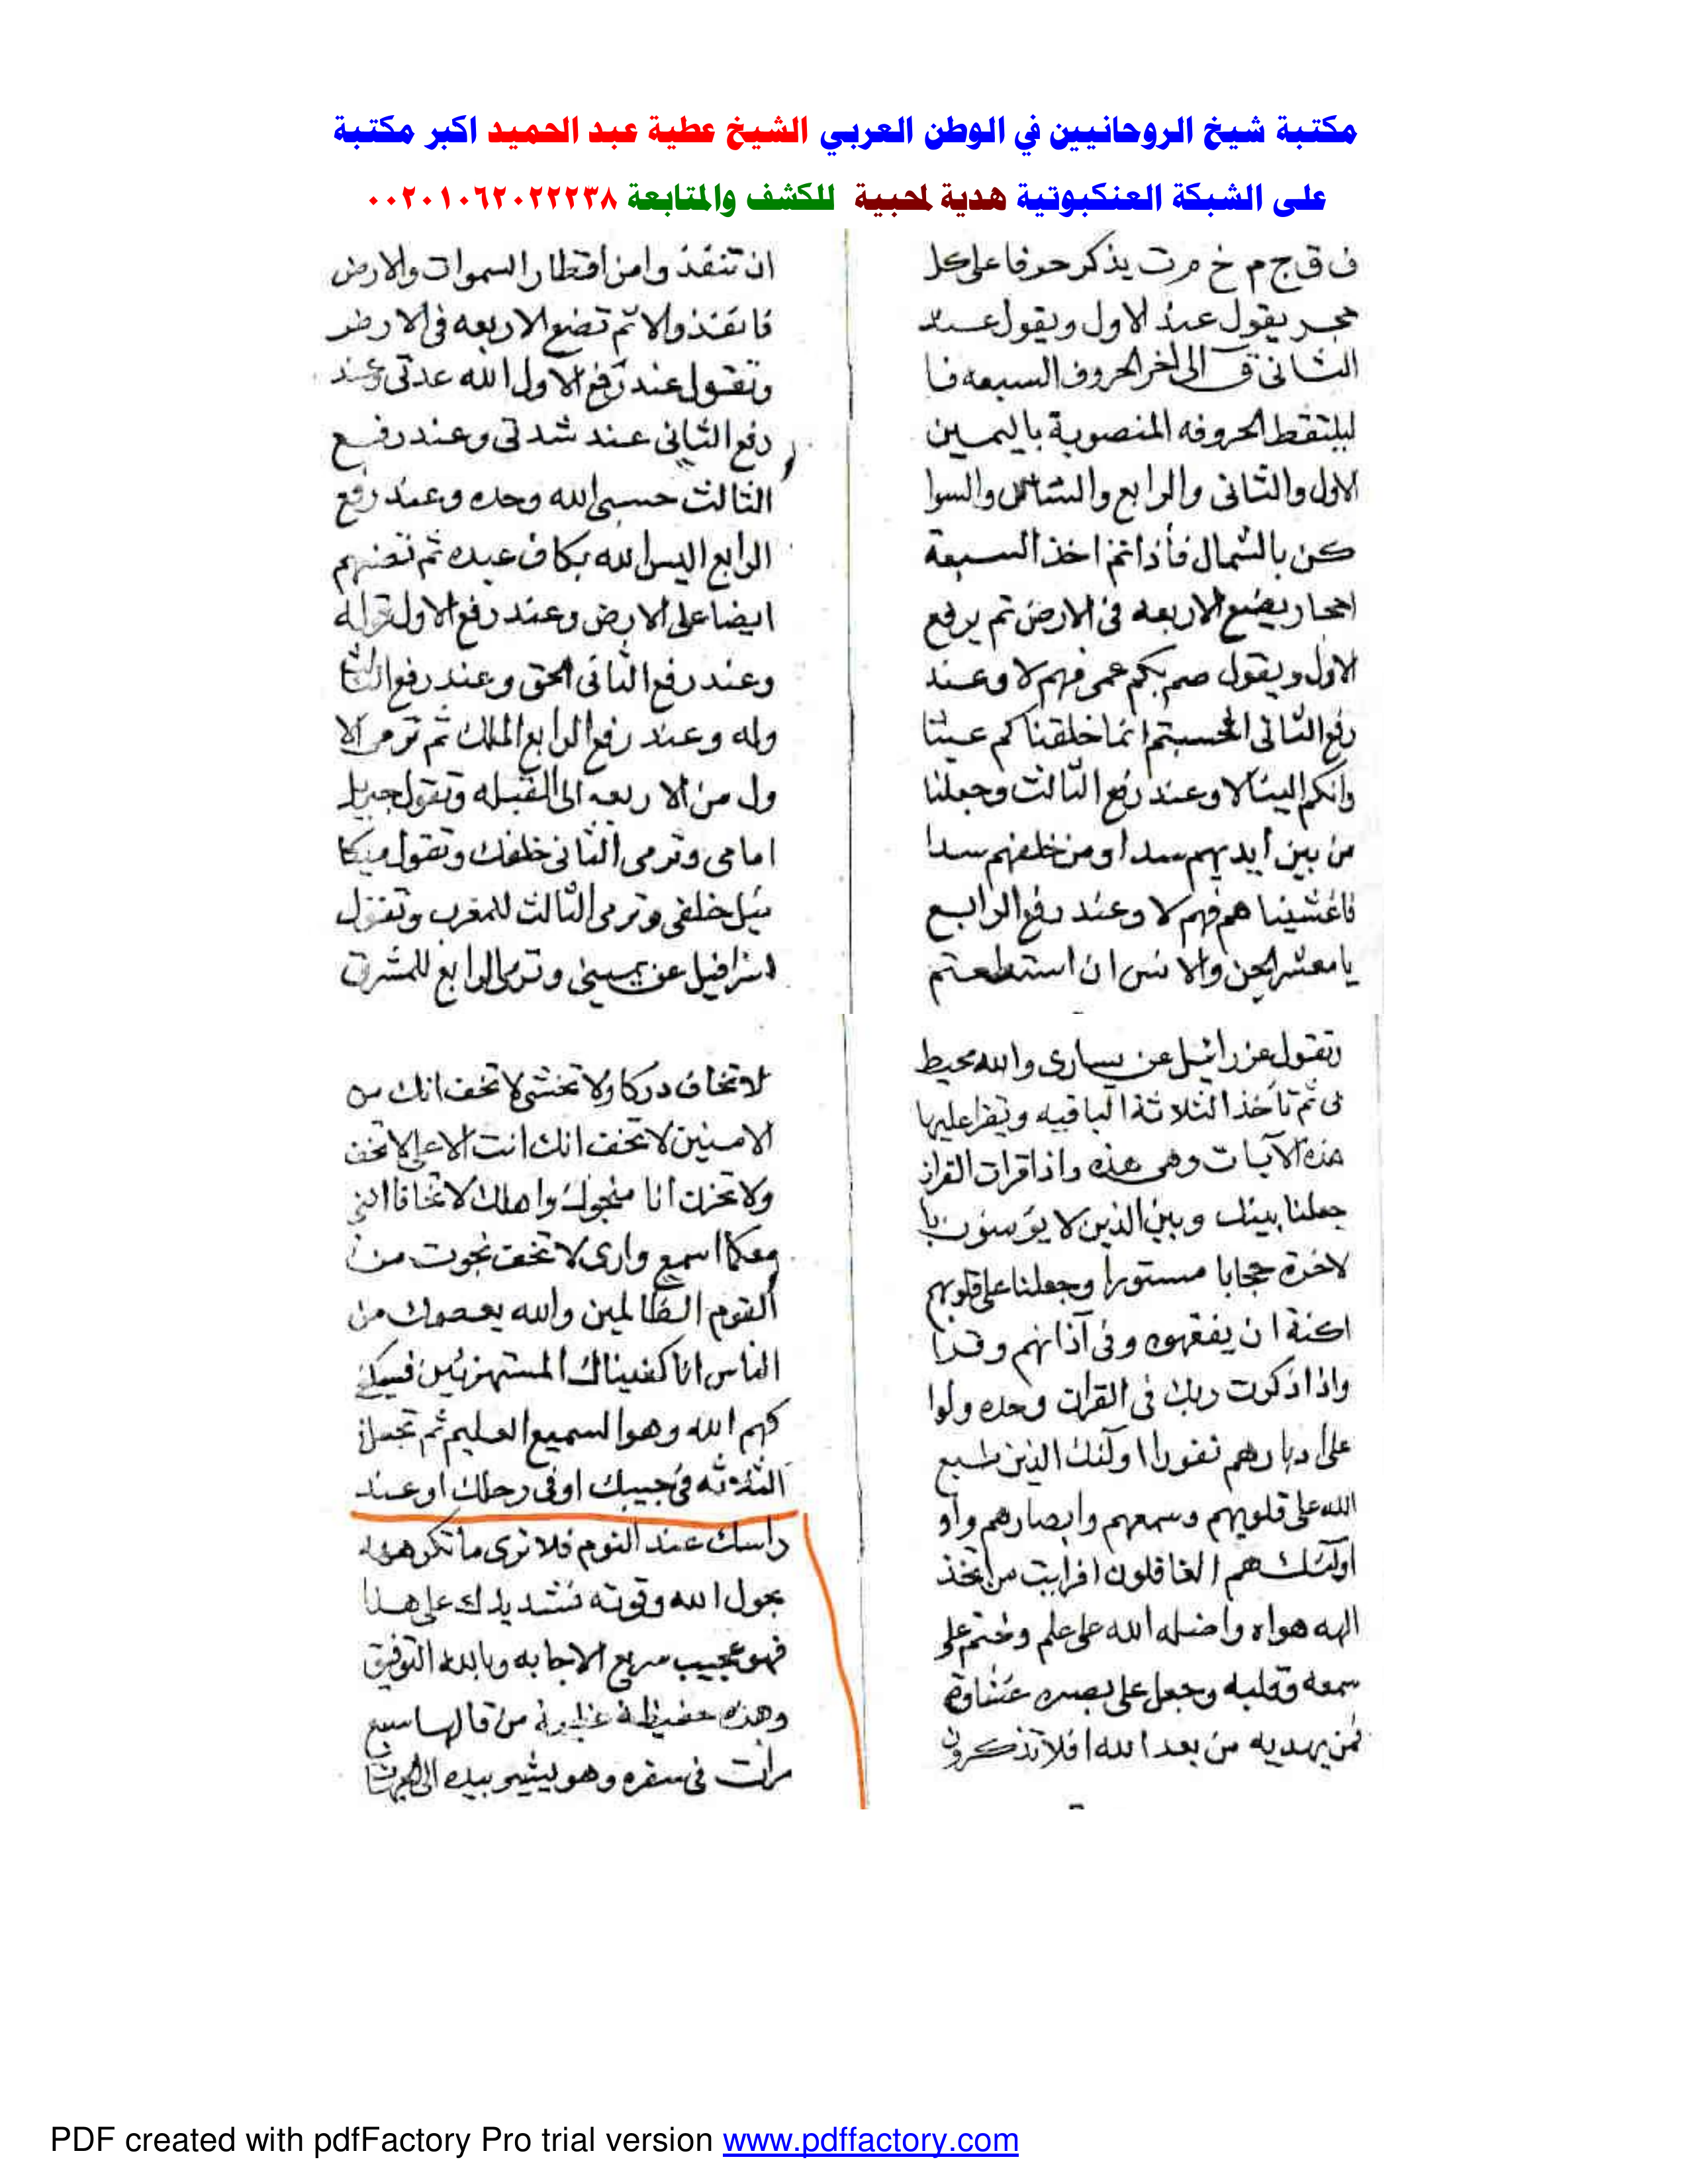 مكتبة شيخ الروحانيين في الوطن العربي الشيخ عطية عبد الحميد اكبر مكتبة
على الشبكة العنكبوتية هدية لمحبية للكشف والمتابعة ٠٠٢٠١٠٦٢٠٢٢٢٣٨
ف ق ج م خ م ت يذكر حرفا على كل
حجر يقول عند الاول ويقول عند
الثانى ق الى اخر الحروف السبعه فا
ليلتقط الحروفه المنصوبة باليمين
الاول والثانى والرابع والسوا
كن بالشمال فأذا تم اخذ السبعة
احجار يضع الاربعه فى الارض ثم يرفع
الاول ويقول صم بكم عمى فهم لا وعند
رفع الثانى افحسبتم انما خلقناكم عبثا
وانكم الينا لا وعند رفع الثالث وجعلنا
من بين أيديهم سدا ومن خلفهم سدا
فاغشينا هم فهم لا وعند رفع الرابع
يا معشر الجن والانس ان استطعتم
ان تنفذوا من اقطار السموات والارض
فانفذوا لا ثم تضع الاربعه فى الارض
وتقول عند رفع الاول الله عدتى وعند
رفع الثانى عند شدتى وعند رفع
الثالث حسبى الله وحده وعند رفع
الرابع اليس الله بكاف عبده ثم تضعهم
ايضا على الارض وعند رفع الاول قوله
وعند رفع الثانى الحق وعند رفع الثا
وله وعند رفع الرابع الملك ثم ترمى الا
ول من الاربعه الى القبله وتقول جبريل
امامى وترمى الثانى خلفك وتقول ميكا
ئيل خلفى وترمى الثالث للمغرب وتقول
اسرافيل عن يمينى وترمى الرابع للمشرق
وتقول عزرائيل عن يسارى والله محيط
بى ثم تأخذ الثلاثة الباقيه وتقرا عليها
هذه الآيات وهى هذه واذا قرات القران
جعلنا بينك وبين الذين لا يؤمنون با
لاخرة حجابا مستورا وجعلنا على قلوبهم
اكنة ان يفقهوه وفى آذانهم وقرا
واذا ذكرت ربك فى القران وحده ولوا
على ادبارهم نفورا اولئك الذين طبع
الله على قلوبهم وسمعهم وابصارهم واو
اولئك هم الغافلون افرايت من اتخذ
الهه هواه واضله الله على علم وختم على
سمعه وقلبه وجعل على بصره غشاوة
فمن يهديه من بعد الله افلا تذكرون
لا تخاف دركا ولا تخشى لا تخف انك من
الامنين لا تخف انك انت الاعلى لا تخف
ولا تحزن انا منجوك واهلك لا تخافا اننى
معكما اسمع وارى لا تخف نجوت من
القوم الظالمين والله يعصمك من
الناس انا كفيناك المستهزئين فسيكفـ
كهم الله وهو السميع العليم ثم تجعل
الثلاثه فى جيبك او فى رحلك او عند
راسك عند النوم فلا ترى ما تكرهه
بحول الله وقوته فشد يدك على هذا
فهو عجيب سريع الاجابه وبالله التوفيق
وهذه حفيظة عظيمة من قالها سبع
مرات فى سفره وهو يشير بيده الى
PDF created with pdfFactory Pro trial version www.pdffactory.com